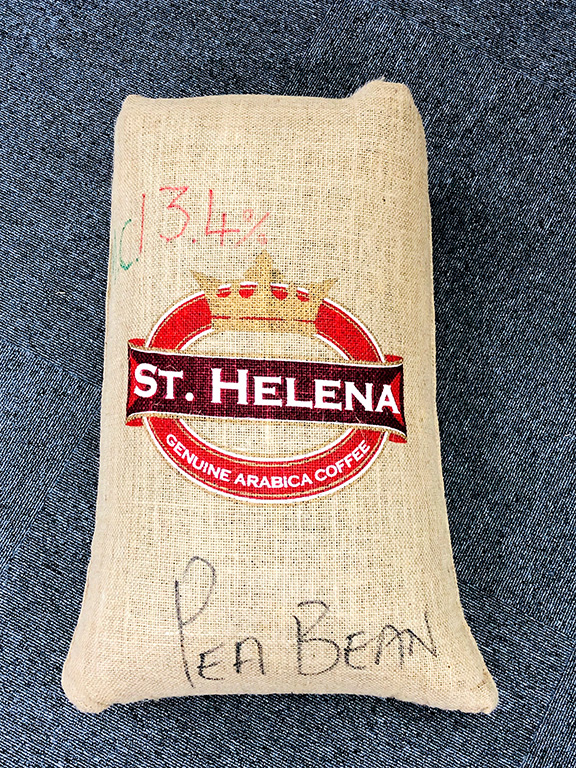 13.4%
ST. HELENA
GENUINE ARABICA COFFEE
PEA BEAN